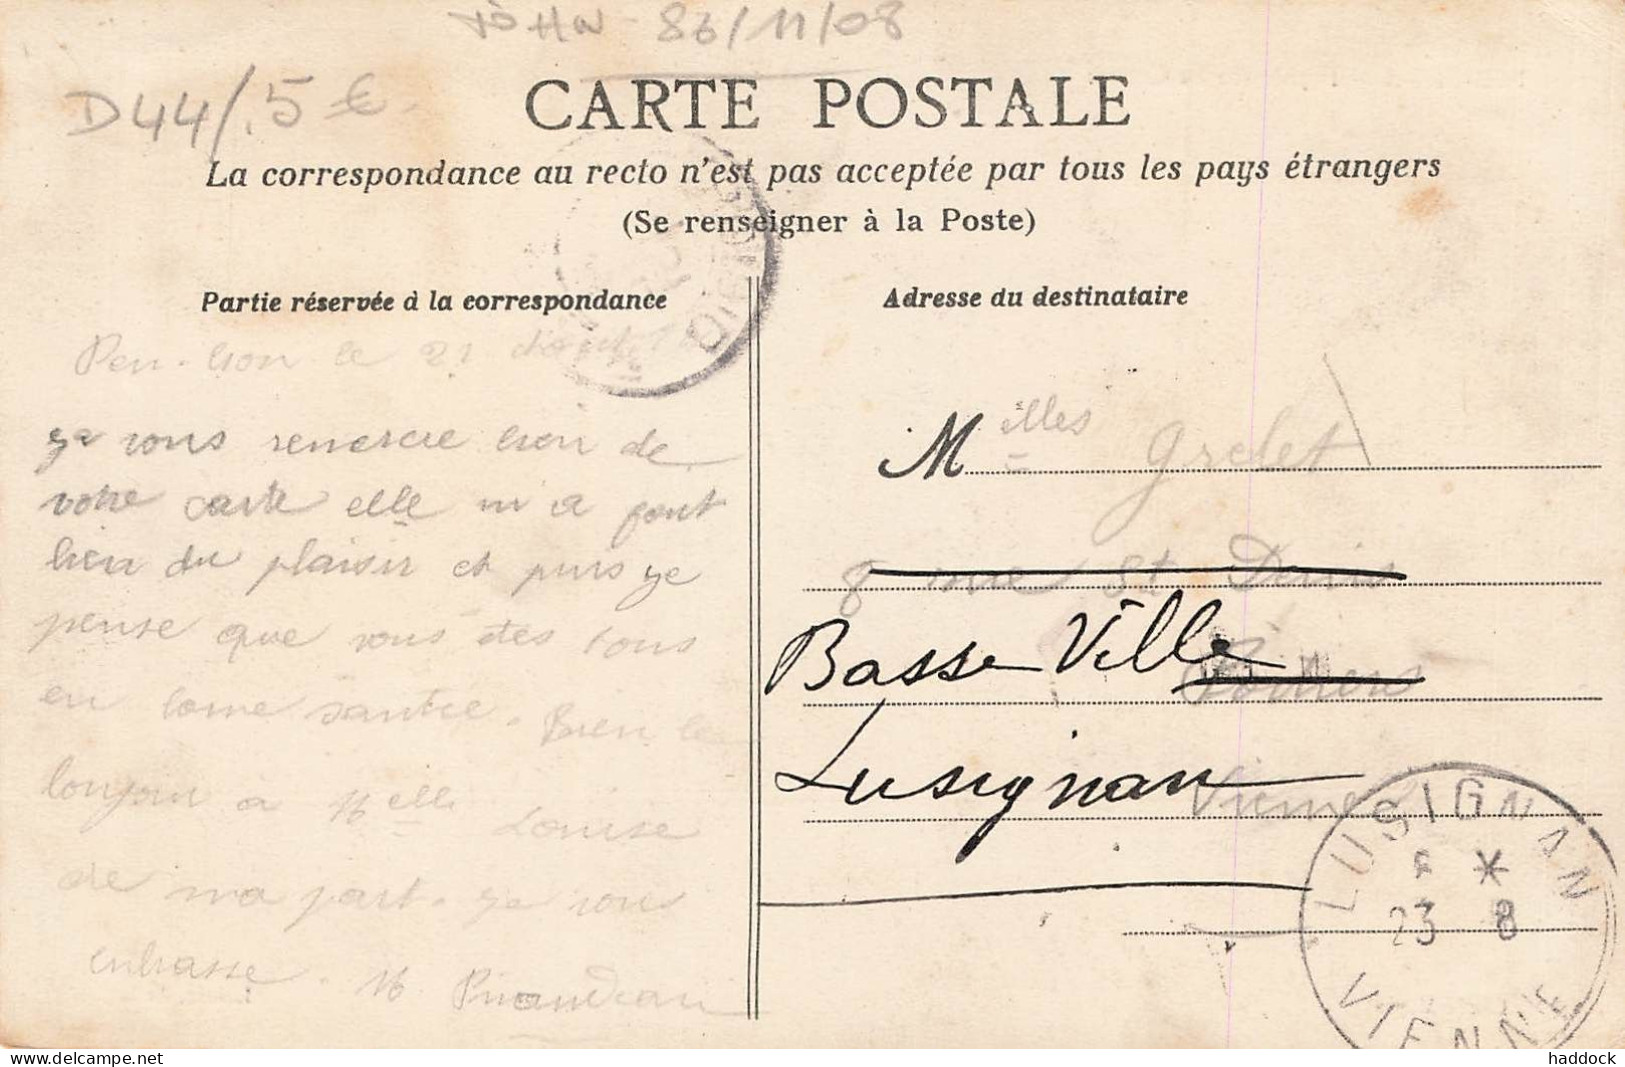 86/11/08
D44/.5 €
CARTE POSTALE
La correspondance au recto n'est pas acceptée par tous les pays étrangers
(Se renseigner à la Poste)
Partie réservée à la correspondance
Pen-bron le 21 Aout
ge vous remercie bien de
votre carte elle m'a fait
bien du plaisir et puis ge
pense que vous êtes tous
en bonne santée. Bien le
bonjour a Melle Louise
de ma part. ge vous
enbrasse. M
Adresse du destinataire
Melles Grelet
8 rue St Denis
Basse Ville Poitiers
Lusignan Vienne
LUSIGNAN
23 8
VIENNE
haddock